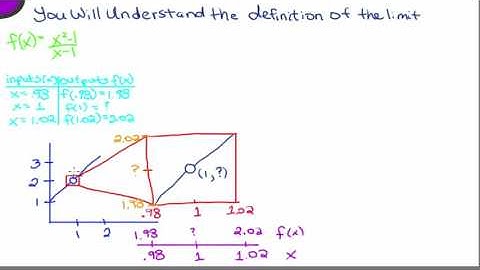 You Will Understand the definition of the limit
f(x)= x²-1
x-1
inputs(x) outputs f(x)
x= .98 f(.98)=1.98
x= 1 f(1) = ?
x= 1.02 f(1.02)=2.02
2.02
3
2
1
?
(1,?)
1.98
.98 1 1.02
1 2
1.98 ? 2.02 f(x)
.98 1 1.02 x